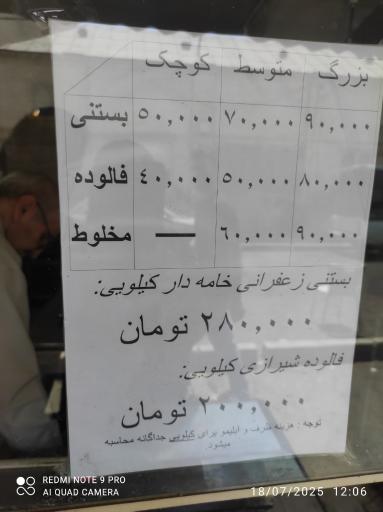 کوچک متوسط بزرگ
بستنی ۵۰,۰۰۰ ۷۰,۰۰۰ ۹۰,۰۰۰
فالوده ۴۰,۰۰۰ ۵۰,۰۰۰ ۸۰,۰۰۰
مخلوط — ۶۰,۰۰۰ ۹۰,۰۰۰
بستنی زعفرانی خامه دار کیلویی:
۲۸۰,۰۰۰ تومان
فالوده شیرازی کیلویی:
۲۰۰,۰۰۰ تومان
توجه : هزینه ظرف و آبلیمو برای کیلویی جداگانه محاسبه
میشود.
REDMI NOTE 9 PRO
AI QUAD CAMERA
18/07/2025 12:06